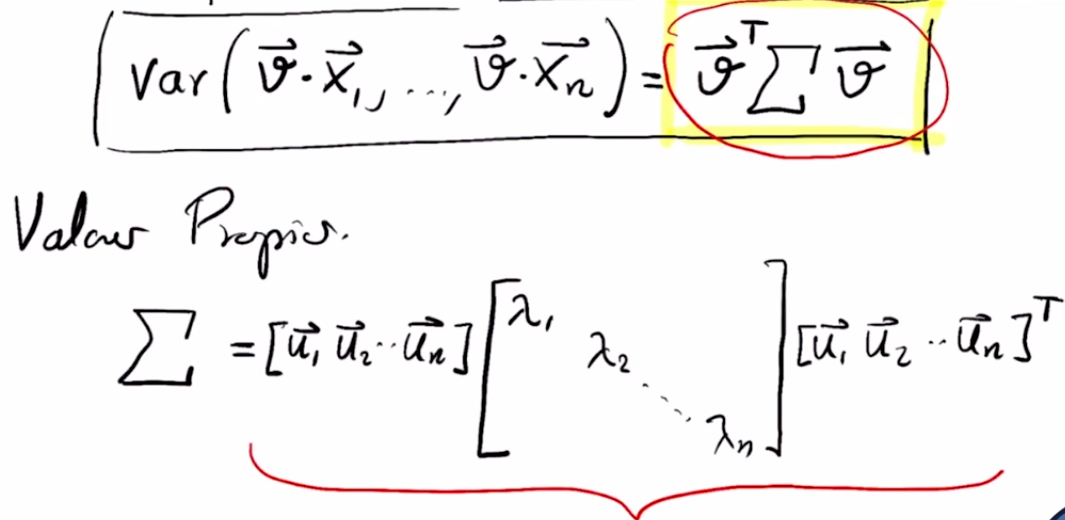 Var(v⃗·x⃗₁, ..., v⃗·x⃗ₙ) = v⃗ᵀ Σ v⃗
Valores Propios.
Σ = [u⃗₁ u⃗₂ ·· u⃗ₙ] [λ₁ λ₂ ⋱ λₙ] [u⃗₁ u⃗₂ ·· u⃗ₙ]ᵀ